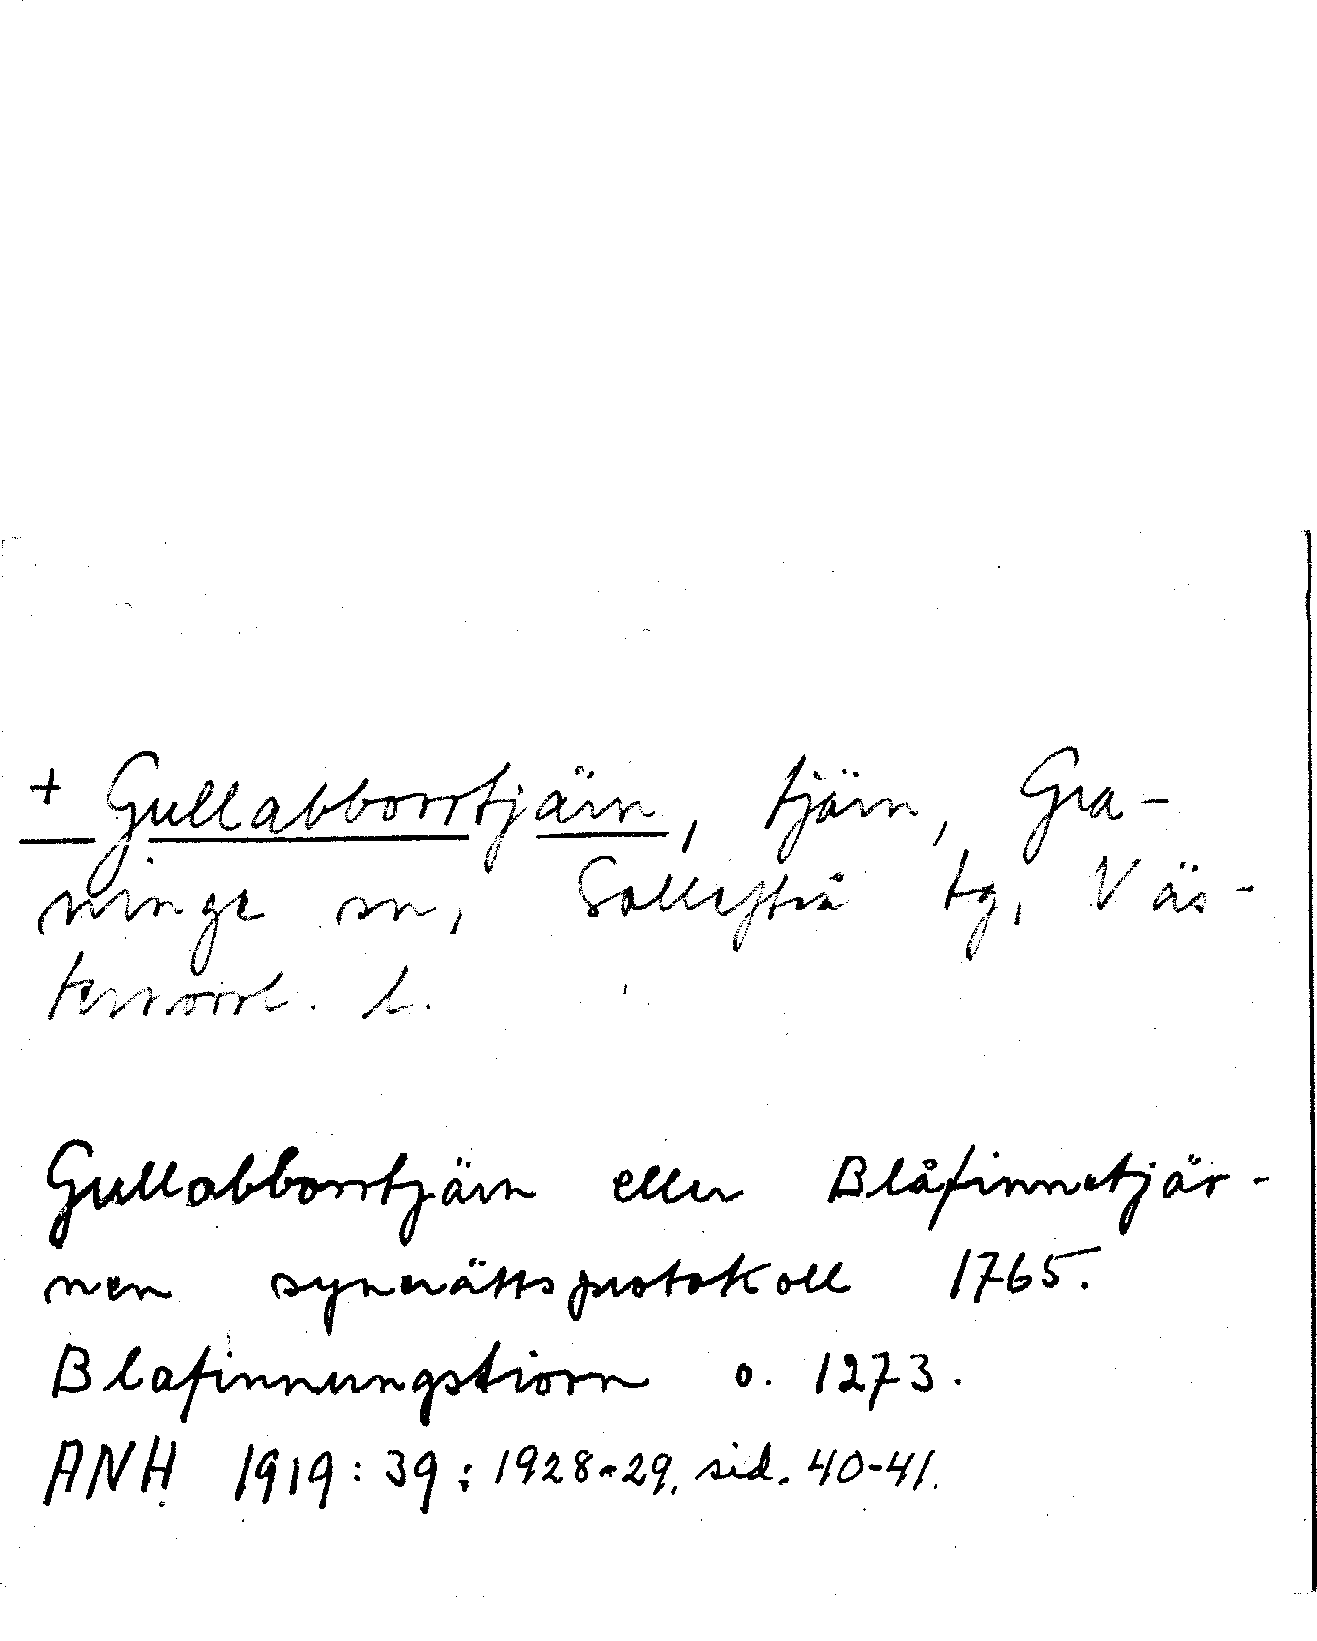 + Gullabborrtjärn, tjärn, Gra-
ninge sn, Sollefteå tg, Väs-
ternorrl. l.
Gullabborrtjärn eller Blåfinnetjär-
nen synerättsprotokoll 1765.
Blafinnungstiorn o. 1273.
ANH 1919:39; 1928-29, sid. 40-41.